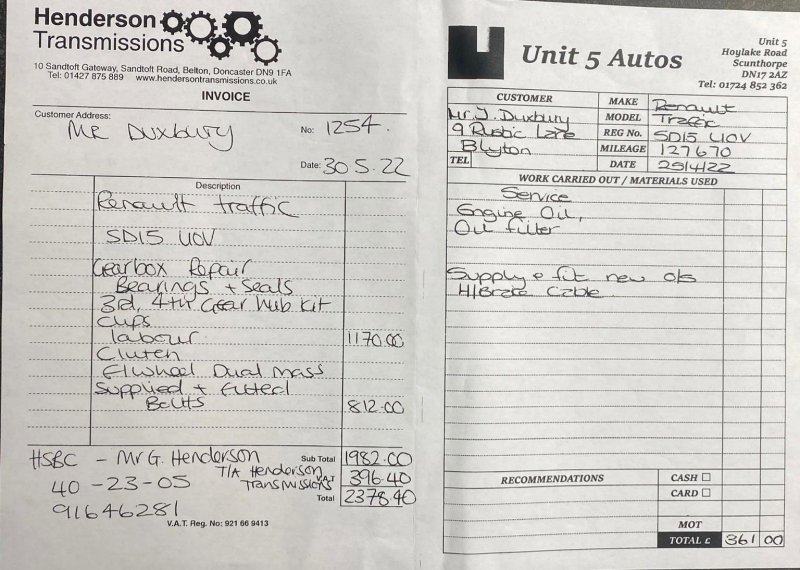 Henderson
Transmissions
10 Sandtoft Gateway, Sandtoft Road, Belton, Doncaster DN9 1FA
Tel: 01427 875 889 www.hendersontransmissions.co.uk
INVOICE
Customer Address:
Mr Duxbury
No: 1254.
Date: 30.5.22
Description
Renault traffic
SD15 UOV
Gearbox Repair
Bearings + Seals
3rd, 4th Gear hub kit
Cups
labour 1170.00
Clutch
Flwheel Dual Mass
Supplied + fitted
Bolts 812.00
HSBC - Mr G. Henderson
T/A Henderson
Transmissions
40-23-05
91646281
Sub Total 1982.00
V.A.T 396.40
Total 2378.40
V.A.T. Reg. No: 921 66 9413
Unit 5 Autos
Unit 5
Hoylake Road
Scunthorpe
DN17 2AZ
Tel: 01724 852 362
CUSTOMER
Mr. J. Duxbury
9 Rustic Lane
Blyton
TEL
MAKE Renault
MODEL Traffic
REG No. SD15 UOV
MILEAGE 127670
DATE 25/4/22
WORK CARRIED OUT / MATERIALS USED
Service
Engine Oil,
Oil filter
Supply & fit new o/s
H/Brake Cable
RECOMMENDATIONS
CASH
CARD
MOT
TOTAL £ 361 00